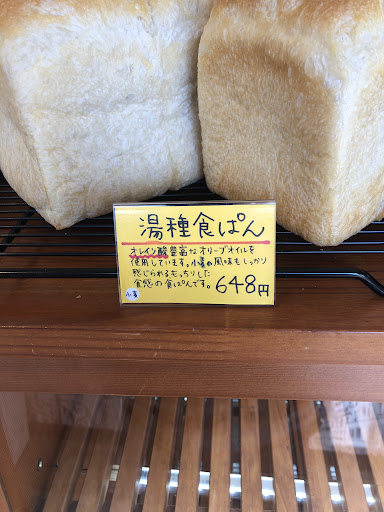 湯種食ぱん
オレイン酸豊富なオリーブオイルを
使用しています。小麦の風味もしっかり
感じられるもっちりした
食感の食ぱんです。648円
小麦